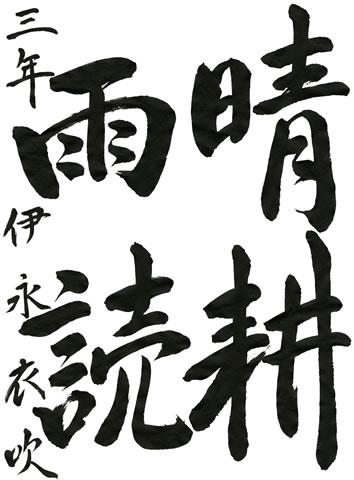 晴耕
雨読
三年 伊永衣吹